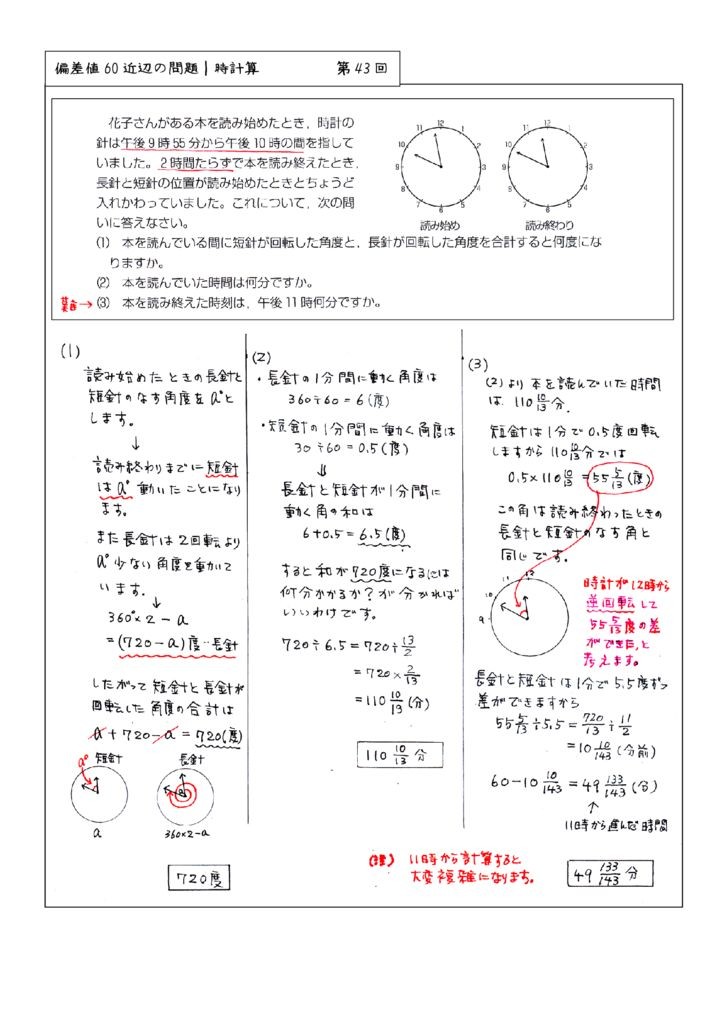 偏差値60近辺の問題|時計算 第43回
花子さんがある本を読み始めたとき，時計の
針は午後9時55分から午後10時の間を指して
いました。2時間たらずで本を読み終えたとき，
長針と短針の位置が読み始めたときとちょうど
入れかわっていました。これについて，次の問
いに答えなさい。
12
11
10
9
8
7
6
5
4
3
2
1
読み始め
12
11
10
9
8
7
6
5
4
3
2
1
読み終わり
(1) 本を読んでいる間に短針が回転した角度と，長針が回転した角度を合計すると何度にな
りますか。
(2) 本を読んでいた時間は何分ですか。
→(3) 本を読み終えた時刻は，午後11時何分ですか。
(1)
読み始めたときの長針と
短針のなす角度をa°と
します。
↓
読み終わりまでに短針
はa°動いたことになり
ます。
また長針は2回転より
a°少ない角度を動いて
います。
↓
360°×2－a
=(720－a)度…長針
したがって短針と長針が
回転した角度の合計は
a+720－a=720(度)
a° 短針
長針
a
360×2－a
720度
(2)
・長針の1分間に動く角度は
360÷60=6(度)
・短針の1分間に動く角度は
30÷60=0.5(度)
⇓
長針と短針が1分間に
動く角の和は
6+0.5=6.5(度)
すると和が720度になるには
何分かかるか？が分かれば
いいわけです。
720÷6.5=720÷13/2
=720×2/13
=110 10/13(分)
110 10/13 分
(3)
(2)より本を読んでいた時間
は 110 10/13分.
短針は1分で0.5度回転
しますから110 10/13分では
0.5×110 10/13=55 5/13(度)
この角は読み終わったときの
長針と短針のなす角と
同じです。
12
11
10
9
時計が12時から
逆回転して
55 5/13度の差
ができた,と
考えます。
長針と短針は1分で5.5度ずつ
差ができますから
55 5/13÷5.5=720/13÷11/2
=10 10/143(分前)
60－10 10/143=49 133/143(分)
↑
11時から進んだ時間
49 133/143 分
(注) 11時から計算すると
大変複雑になります。